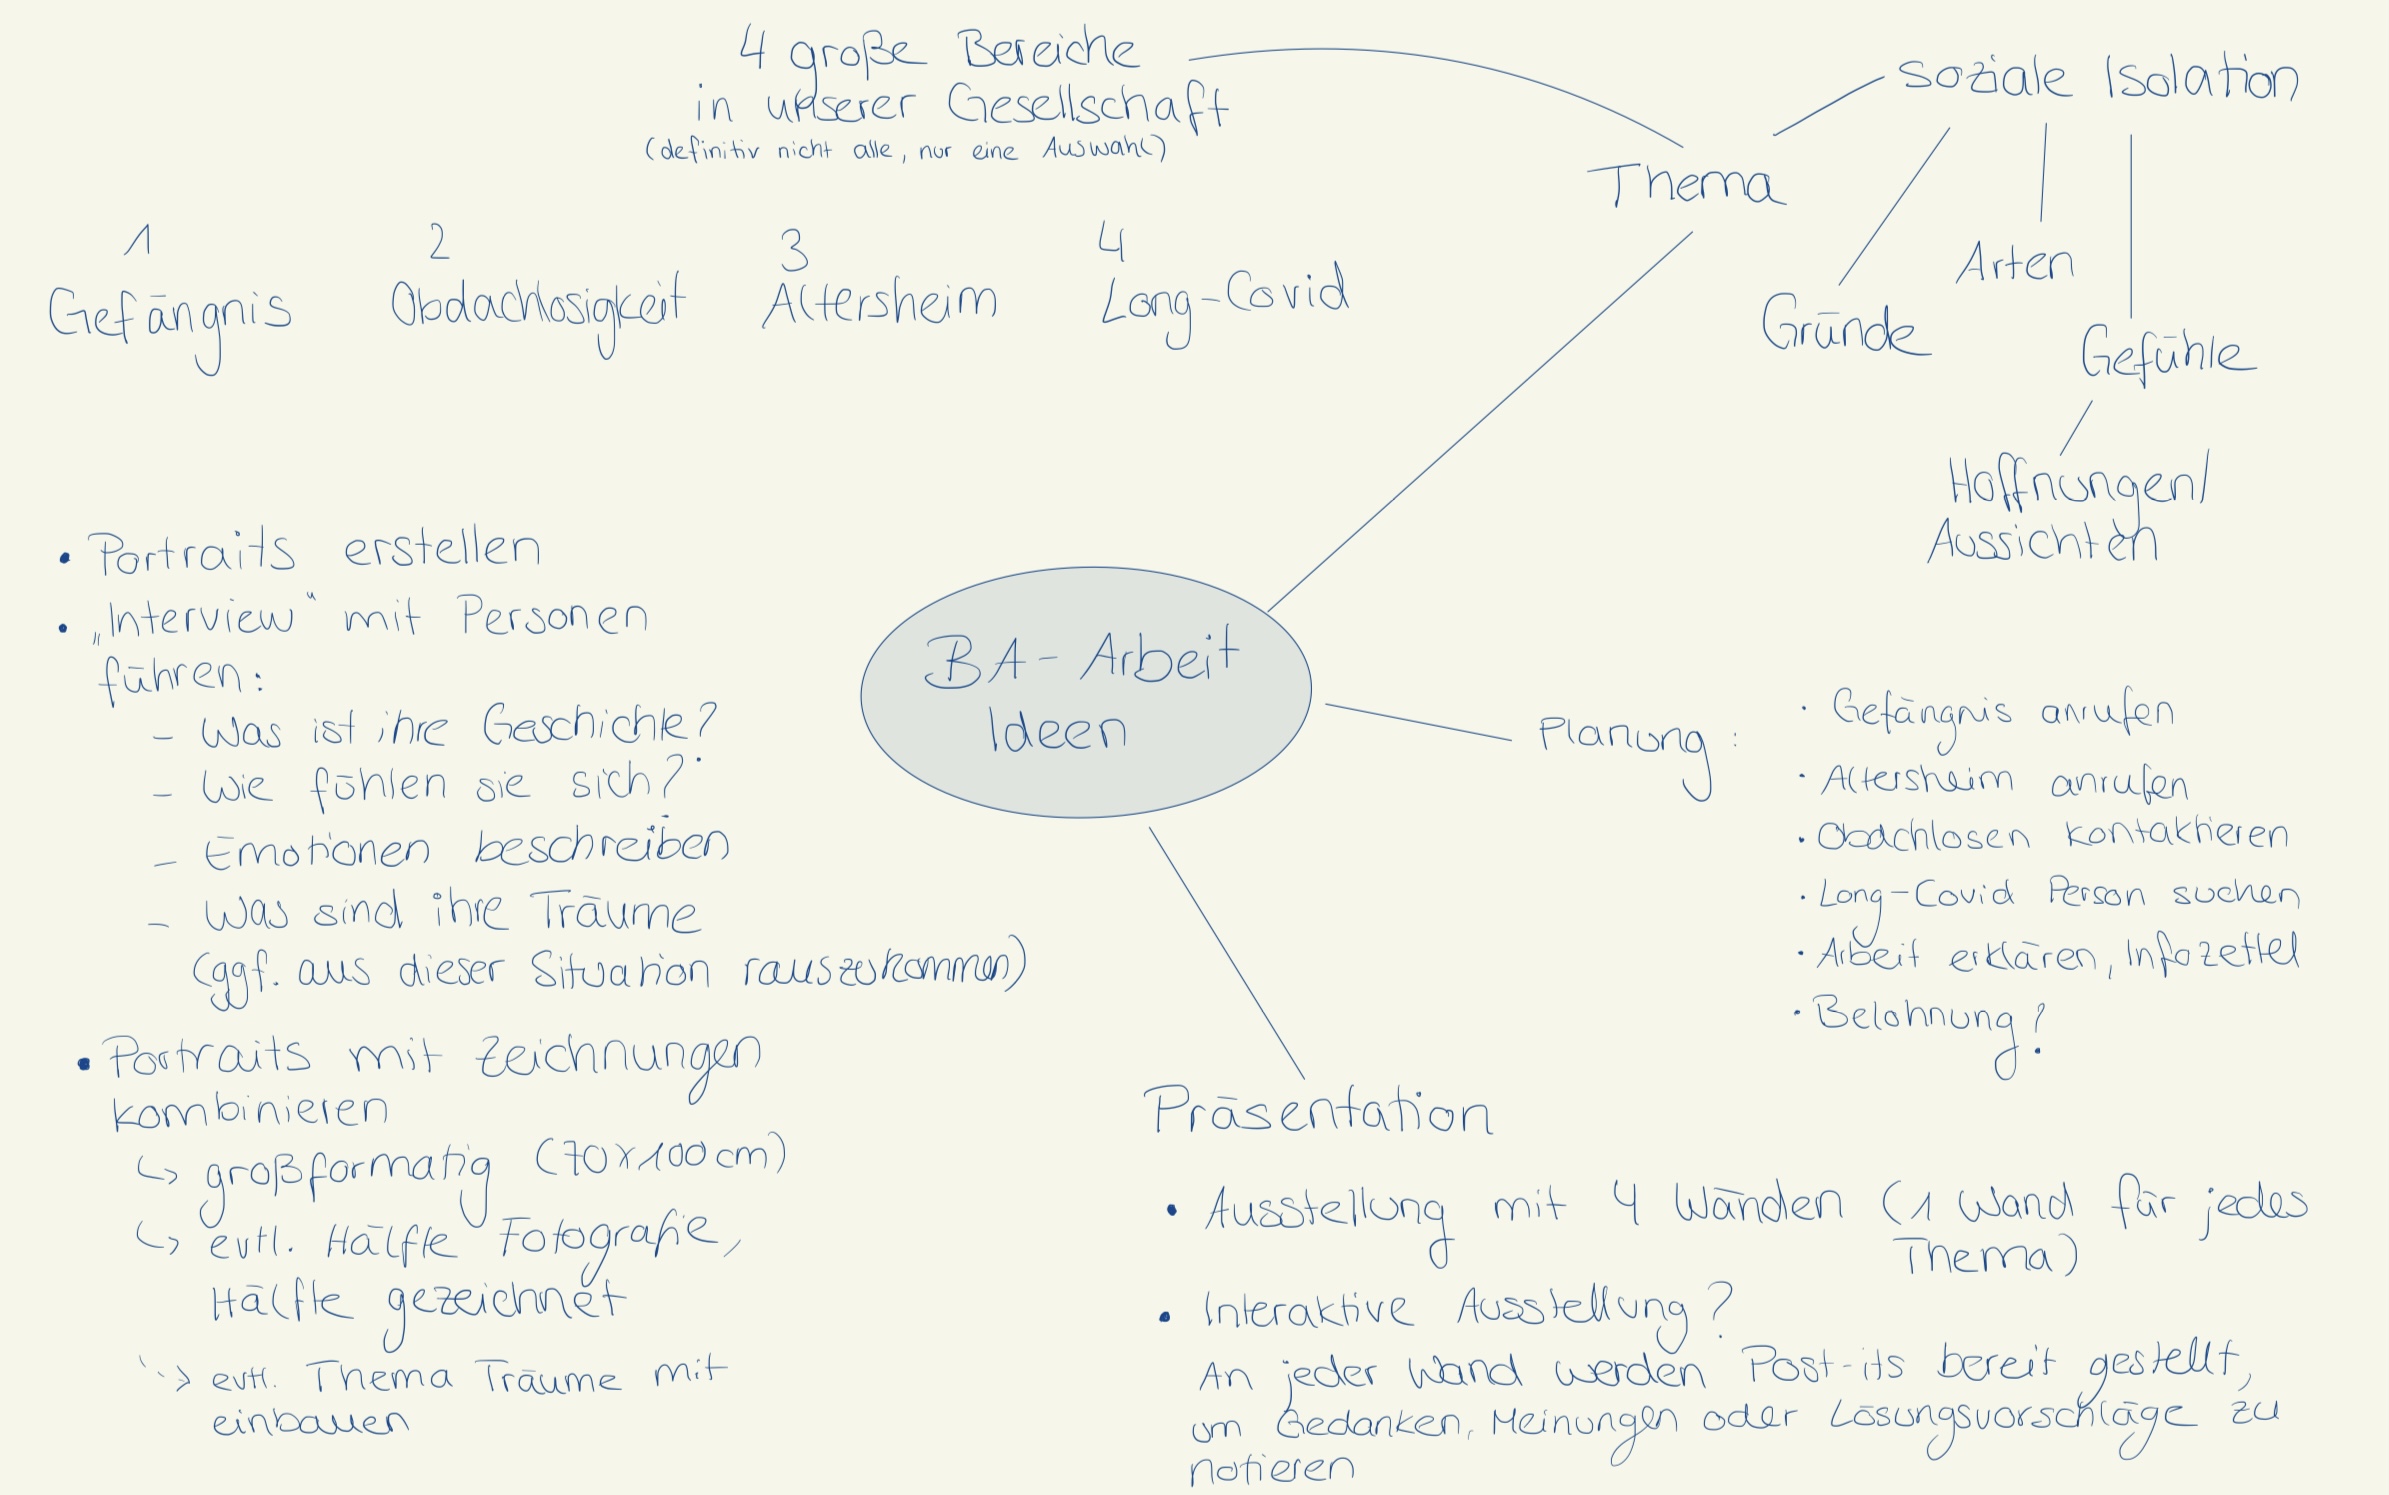 4 große Bereiche
in unserer Gesellschaft
(definitiv nicht alle, nur eine Auswahl)
1
Gefängnis
2
Obdachlosigkeit
3
Altersheim
4
Long-Covid
Thema
soziale Isolation
Gründe
Arten
Gefühle
Hoffnungen/
Aussichten
• Portraits erstellen
• „Interview“ mit Personen
führen:
- Was ist ihre Geschichte?
- Wie fühlen sie sich?
- Emotionen beschreiben
- Was sind ihre Träume
(ggf. aus dieser Situation rauszukommen)
• Portraits mit Zeichnungen
kombinieren
↳ großformatig (70x100cm)
↳ evtl. Hälfte Fotografie,
Hälfte gezeichnet
↳ evtl. Thema Träume mit
einbauen
BA-Arbeit
Ideen
Planung:
· Gefängnis anrufen
· Altersheim anrufen
· Obdachlosen kontaktieren
· Long-Covid Person suchen
· Arbeit erklären, Infozettel
· Belohnung?
Präsentation
• Ausstellung mit 4 Wänden (1 Wand für jedes
Thema)
• Interaktive Ausstellung?
An jeder Wand werden Post-its bereit gestellt,
um Gedanken, Meinungen oder Lösungsvorschläge zu
notieren